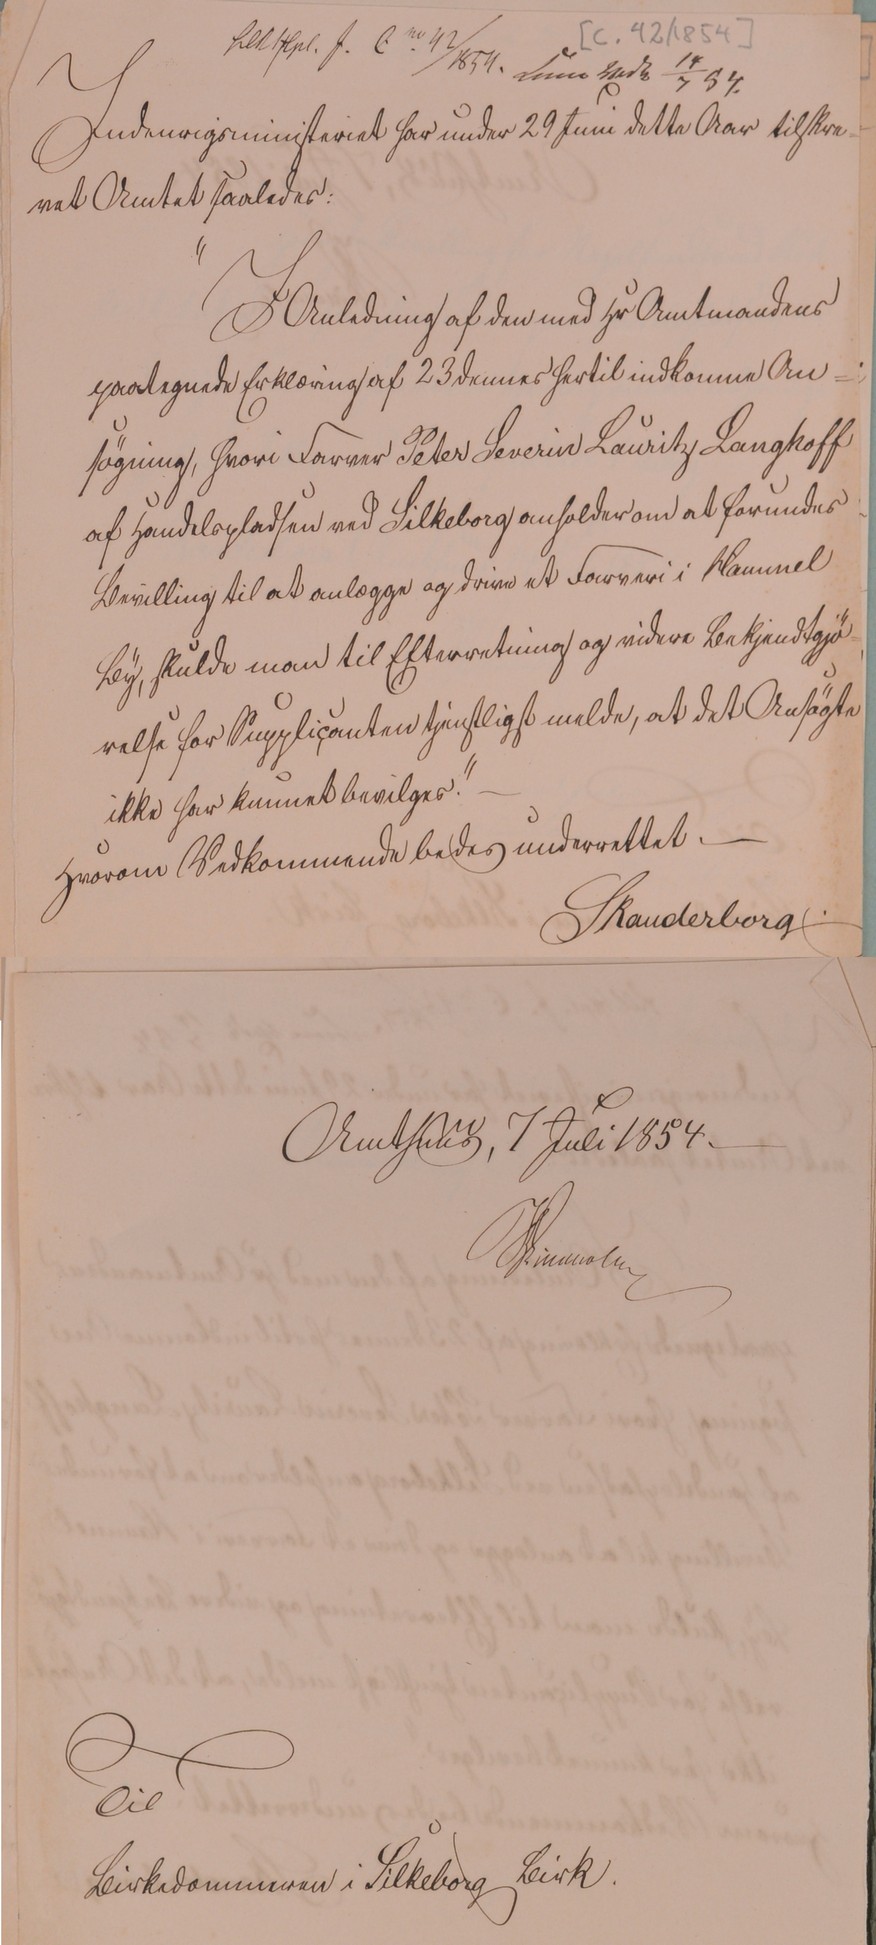 f. C no. 42/1854.
[C. 42/1854]
14/7 54.
Indenrigsministeriet har under 29 Juni dette Aar tilskre-
vet Amtet saaledes:
"I Anledning af den med Hr Amtmandens
paategnede Erklæring af 23 dennes hertil indkomne An-
søgning, hvori Farver Peter Severin Lauritz Langhoff
af Handelspladsen ved Silkeborg anholder om at forundes
Bevilling til at anlægge og drive et Farveri i Hammel
By, skulde man til Efterretning og videre Bekjendtgjö-
relse for Supplicanten tjenstligst melde, at det Ansögte
ikke har kunnet bevilges." —
Hvorom Vedkommende bedes underrettet. —
Skanderborg
Amthuus, 7 Juli 1854. —
Til
Birkedommeren i Silkeborg Birk.